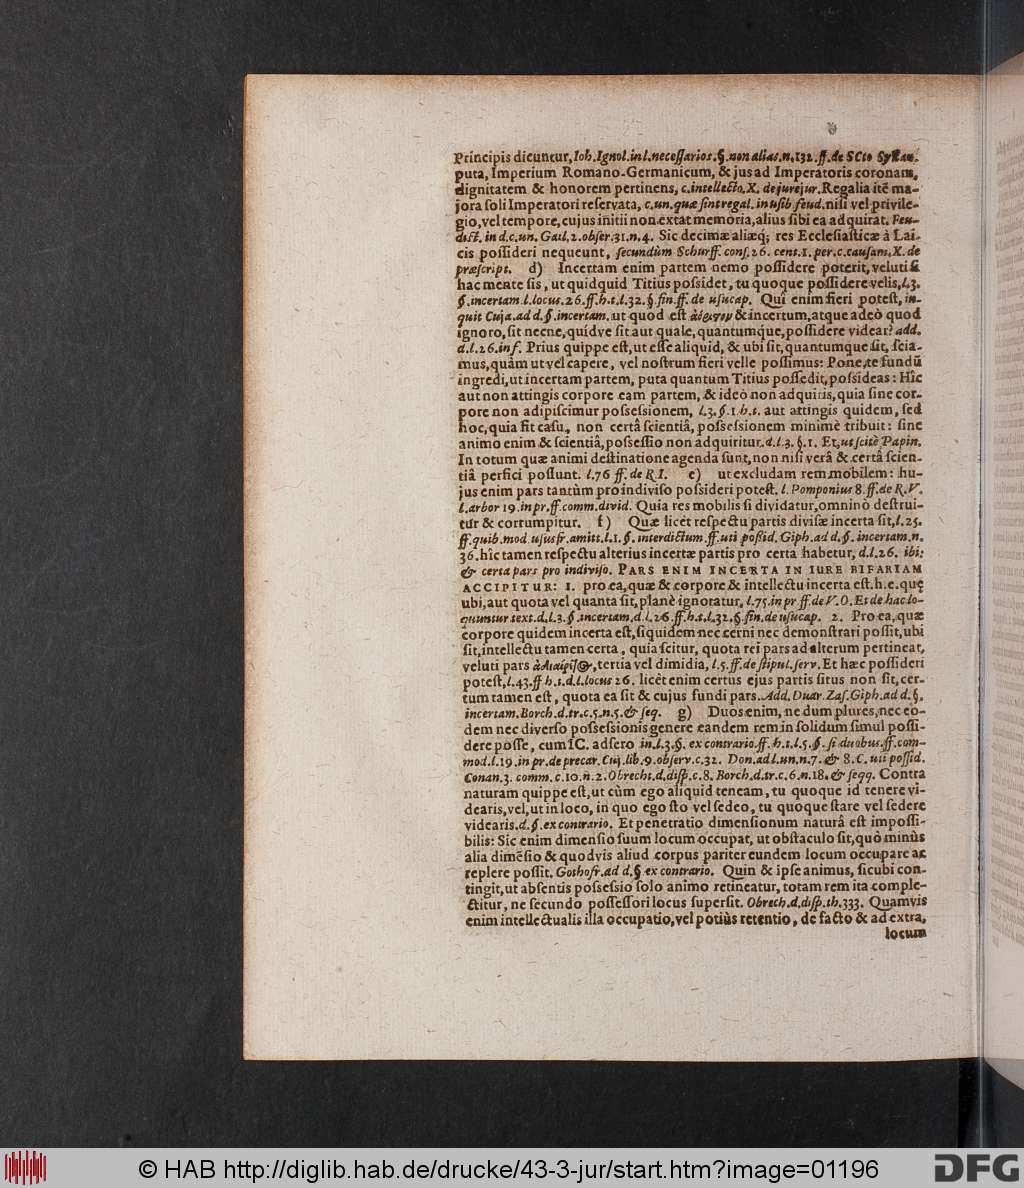 Principis dicuntur, Ioh. Ignol. in l. necessarios. §. non alias. n. 132. ff. de SCto Syllan.
puta, Imperium Romano-Germanicum, & jus ad Imperatoris coronam,
dignitatem & honorem pertinens, c. intellecto. X. de jurejur. Regalia itē ma-
jora soli Imperatori reservata, c. un. quæ sint regal. in usib. feud. nisi vel privile-
gio, vel tempore, cujus initii non extat memoria, alius sibi ea adquirat. Feu-
dict. in d. c. un. Gail. 2. obser. 31. n. 4. Sic decimæ aliæq; res Ecclesiasticæ à Lai-
cis possideri nequeunt, secundùm Schurff. cons. 26. cent. 1. per. c. causam. X. de
præscript. d) Incertam enim partem nemo possidere poterit, veluti si
hac mente sis, ut quidquid Titius possidet, tu quoque possidere velis, l. 3.
§. incertam. l. locus. 26. ff. h. t. l. 32. §. fin. ff. de usucap. Qui enim fieri potest, in-
quit Cuja. ad d. §. incertam. ut quod est ἀόριστον & incertum, atque adeò quod
ignoro, sit necne, quidve sit aut quale, quantumq́ue, possidere videar? add.
d. l. 26. inf. Prius quippe est, ut esse aliquid, & ubi sit, quantumque sit, scia-
mus, quàm ut vel capere, vel nostrum fieri velle possimus: Pone, te fundū
ingredi, ut incertam partem, puta quantum Titius possedit, possideas: Hîc
aut non attingis corpore eam partem, & ideò non adquiris, quia sine cor-
pore non adipiscimur possessionem, l. 3. §. 1. h. t. aut attingis quidem, sed
hoc, quia fit casu, non certâ scientiâ, possessionem minimè tribuit: sine
animo enim & scientiâ, possessio non adquiritur. d. l. 3. §. 1. Et, ut scitè Papin.
In totum quæ animi destinatione agenda sunt, non nisi verâ & certâ scien-
tiâ perfici possunt. l. 76 ff. de R. I. e) ut excludam rem mobilem: hu-
jus enim pars tantùm pro indiviso possideri potest. l. Pomponius 8. ff. de R. V.
l. arbor 19. in pr. ff. comm. divid. Quia res mobilis si dividatur, omninò destrui-
tur & corrumpitur. f) Quæ licèt respectu partis divisæ incerta sit, l. 25.
ff. quib. mod. ususfr. amitt. l. 1. §. interdictum. ff. uti possid. Giph. ad d. §. incertam. n.
36. hîc tamen respectu alterius incertæ partis pro certa habetur, d. l. 26. ibi:
& certa pars pro indiviso. PARS ENIM INCERTA IN IURE BIFARIAM
ACCIPITUR: 1. pro ea, quæ & corpore & intellectu incerta est. h. e. quę
ubi, aut quota vel quanta sit, planè ignoratur, l. 75. in pr ff. de V. O. Et de hac lo-
quuntur text. d. l. 3. §. incertam, d. l. 26. ff. h. t. l. 32. §. fin. de usucap. 2. Pro ea, quæ
corpore quidem incerta est, siquidem nec cerni nec demonstrari possit, ubi
sit, intellectu tamen certa, quia scitur, quota rei pars ad alterum pertineat,
veluti pars ἀδιαίρετος, tertia vel dimidia, l. 5. ff. de stipul. serv. Et hæc possideri
potest, l. 43. ff h. t. d. l. locus 26. licèt enim certus ejus partis situs non sit, cer-
tum tamen est, quota ea sit & cujus fundi pars. Add. Duar. Zas. Giph. ad d. §.
incertam. Borch. d. tr. c. 5. n. 5. & seq. g) Duos enim, ne dum plures, nec eo-
dem nec diverso possessionis genere eandem rem in solidum simul possi-
dere posse, cum IC. adsero in. l. 3. §. ex contrario. ff. h. t. l. 5. §. si duobus. ff. com-
mod. l. 19. in pr. de precar. Cuj. lib. 9. observ. c. 32. Don. ad l. un. n. 7. & 8. C. uti possid.
Conan. 3. comm. c. 10. n. 2. Obrecht. d. disp. c. 8. Borch. d. tr. c. 6. n. 18. & seqq. Contra
naturam quippe est, ut cùm ego aliquid teneam, tu quoque id tenere vi-
dearis, vel, ut in loco, in quo ego sto vel sedeo, tu quoque stare vel sedere
videaris. d. §. ex contrario. Et penetratio dimensionum naturâ est impossi-
bilis: Sic enim dimensio suum locum occupat, ut obstaculo sit, quò minùs
alia dimēsio & quodvis aliud corpus pariter eundem locum occupare ac
replere possit. Gothofr. ad d. § ex contrario. Quin & ipse animus, sicubi con-
tingit, ut absentis possessio solo animo retineatur, totam rem ita comple-
ctitur, ne secundo possessori locus supersit. Obrech. d. disp. th. 333. Quamvis
enim intellectualis illa occupatio, vel potiùs retentio, de facto & ad extra,
locum
© HAB http://diglib.hab.de/drucke/43-3-jur/start.htm?image=01196
DFG